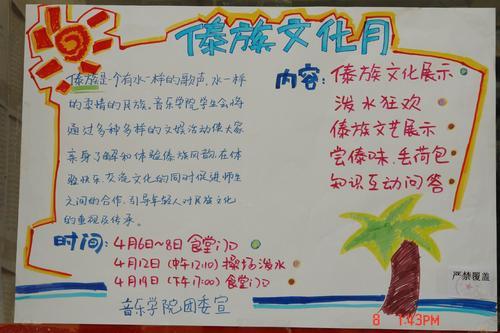 傣族文化月
傣族是一个有水一样的歌声、水一样
的柔情的民族，音乐学院学生会将
通过多种多样的文娱活动使大家
亲身了解和体验傣族风韵，在体
验快乐、交流文化的同时促进师生
之间的合作，引导年轻人对民族文化
的重视及传承。
内容：傣族文化展示
泼水狂欢
傣族文艺展示
尝傣味、丢荷包
知识互动问答
时间：4月6日~8日 食堂门口
4月12日(中午12:10) 操场泼水
4月19日(下午17:00) 食堂门口
音乐学院团委宣
严禁覆盖
8 1:43PM